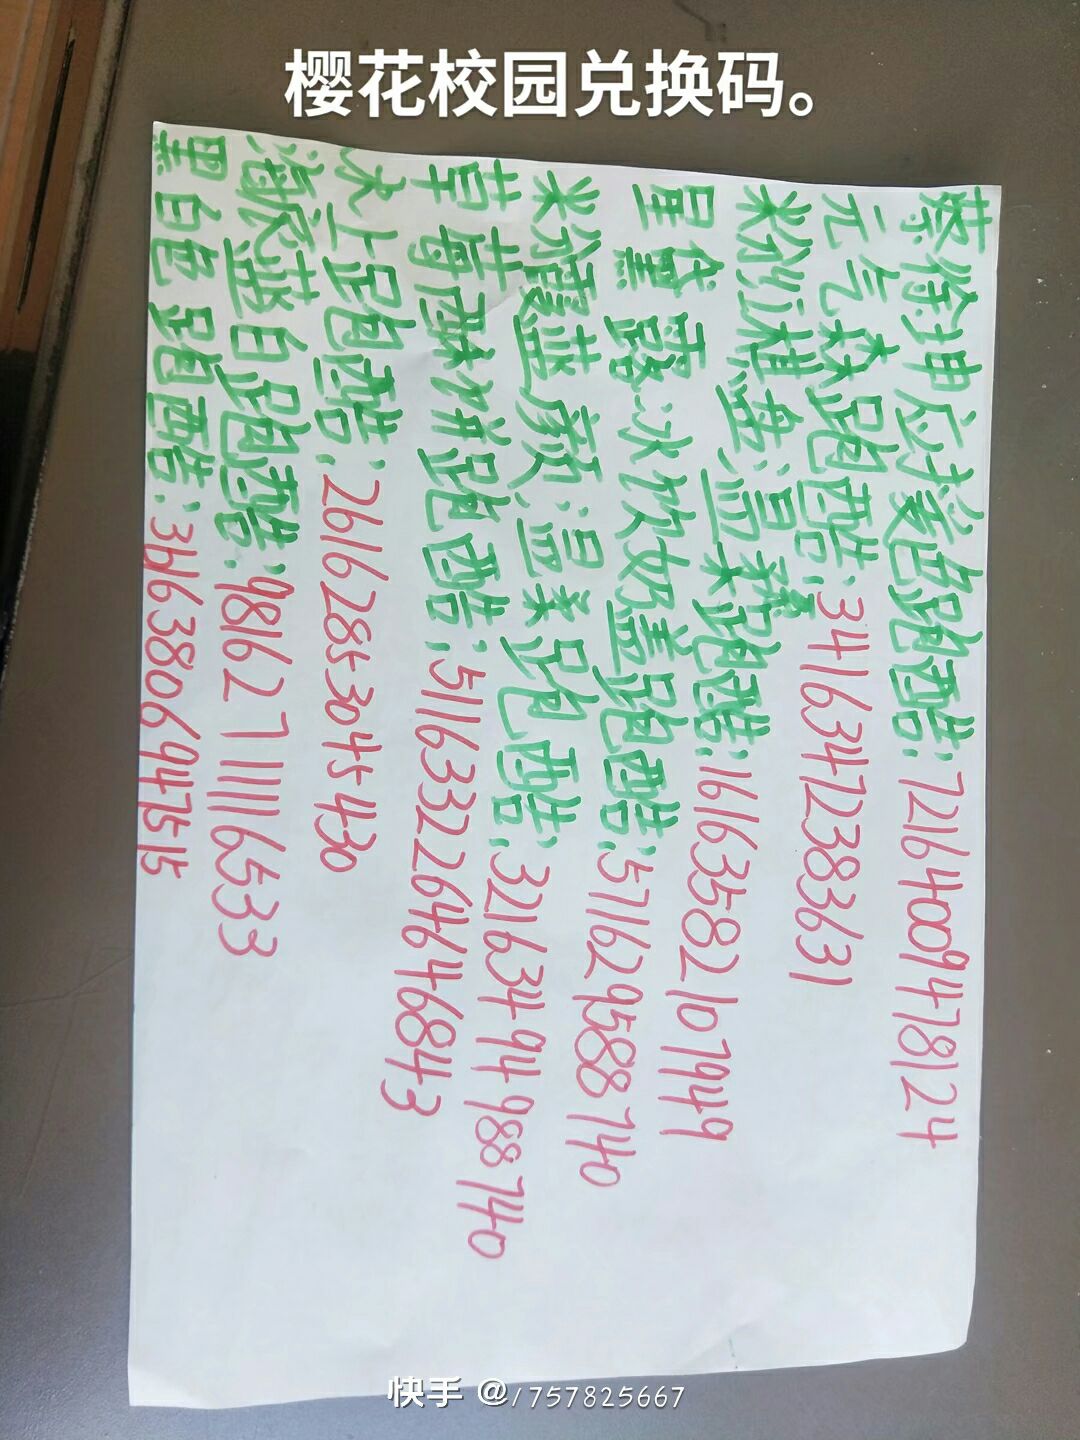 樱花校园兑换码。
蔡徐坤应援色跑酷:72164009478124
元气森跑酷:34163472383631
粉红棋盘温柔跑酷:16163582107949
星 露冰饮奶盖跑酷:571629588740
粉霞蓝颜温柔跑酷:32163494988740
草莓酥饼跑酷:5116332264646843
冰上跑酷:26162853045430
蓝白跑酷:98162711116533
黑白色跑酷:36163806947515
快手 @/757825667